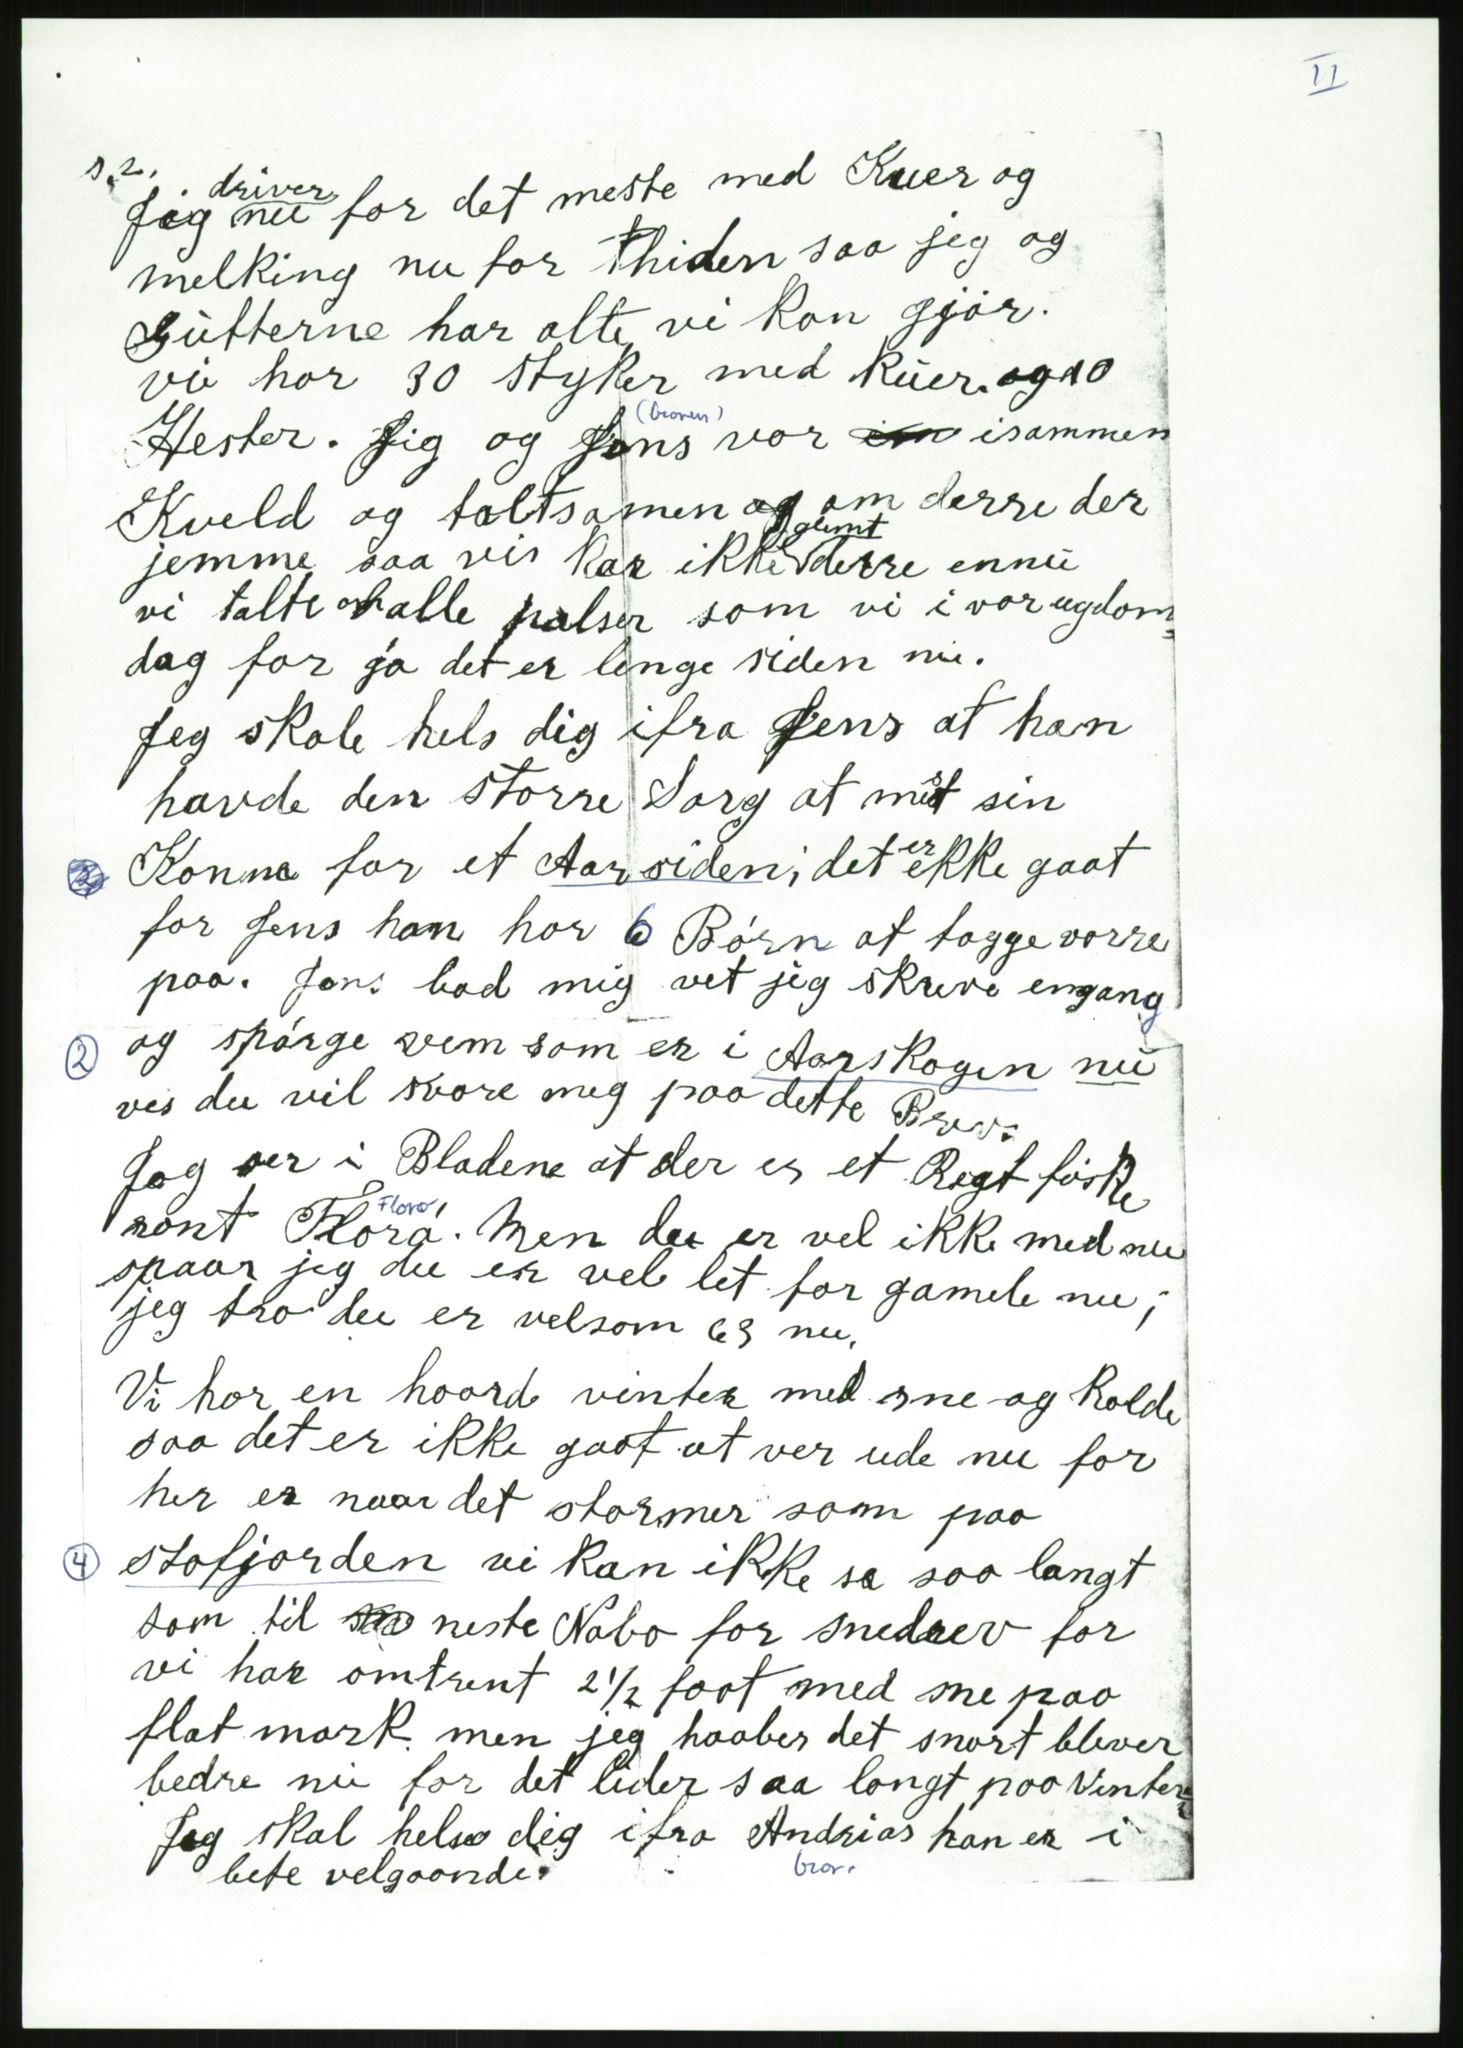 II
s. 2.
driver
Jeg nu for det meste med Kuer og
melking nu for Thiden saa jeg og
Gutterne har alte vi kan gjör.
vi har 30 styker med kuer. og 10
(broren)
Hester. Jeg og Jens var isammen
Kveld og talt samen og om derre der
glemt
jemme saa vis har ikke derre ennu
vi talte om alle palser som vi i vor ugdom
dag for ja det er lenge siden nu.
Jeg skale hels dig ifra Jens at han
havde den storre Sorg at mist sin
Konne for et Aar siden; det er ekke gaat
for Jens han har 6 Börn at tagge varre
paa. Jens bad mig vet jeg skreve engang
2 og spörge vem som er i Aarskogen nu
ves du vil svare meg paa dette Brev.
Jeg ser i Bladene at der er et Regt fiske
Florø
ront Florá. Men du er vel ikke med nu
spaar jeg du er vel let for gamele nu;
jeg tro du er velsom 63 nu.
Vi har en haard vinter med sne og kolde
saa det er ikke gaat at ver ude nu for
her er naar det stormer som paa
4 stafjorden vi kan ikke se saa langt
som til neste Nabo for snedrev for
vi har omtrent 2 1/2 foot med sne paa
flat mark. men jeg haaber det snart blever
bedre nu for det lider saa langt paa Vinter
Jeg skal helse dig ifra Andrias han er i
bete velgaande. bror.